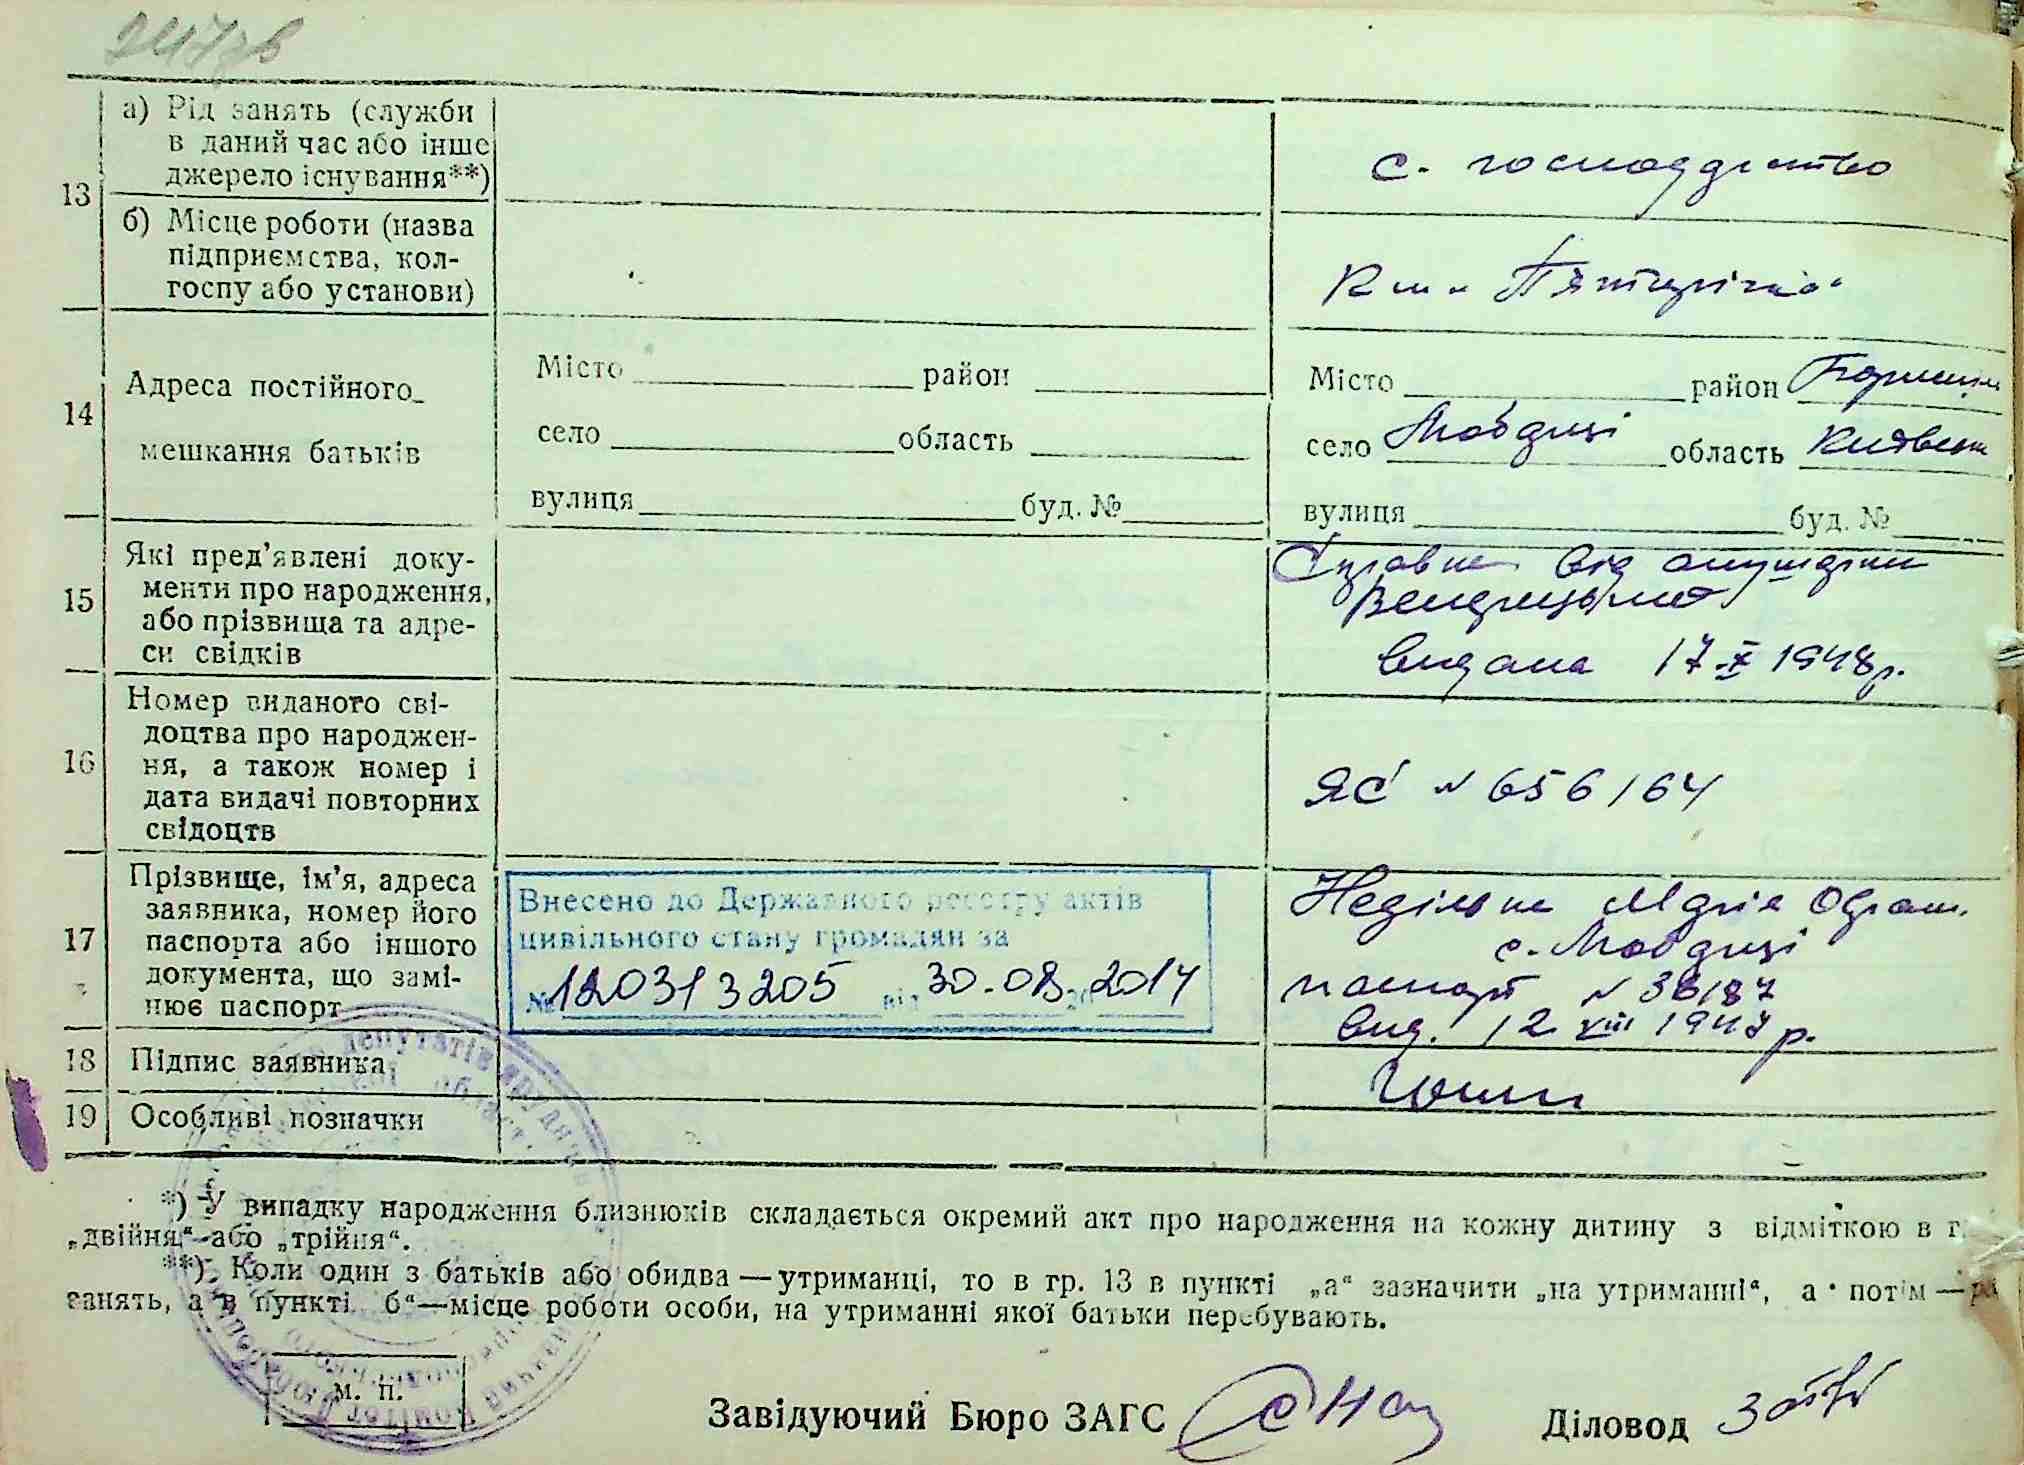 13
а) Рід занять (служби
в даний час або інше
джерело існування**)
с. господарство
б) Місце роботи (назва
підприємства, кол-
госпу або установи)
К-п „Пятирічка"
14
Адреса постійного
мешкання батьків
Місто район
село область
вулиця буд. №
Місто район
село область Київськ
вулиця буд. №
15
Які пред'явлені доку-
менти про народження,
або прізвища та адре-
си свідків
Справка від
видана 17-X 1948 р.
16
Номер виданого сві-
доцтва про народжен-
ня, а також номер і
дата видачі повторних
свідоцтв
ЯС N 656164
17
Прізвище, ім'я, адреса
заявника, номер його
паспорта або іншого
документа, що замі-
нює паспорт
Внесено до Державного реєстру актів
цивільного стану громадян за
№ 120313205 від 30.08.2014
Недільна Марія
паспорт N 38187
вид. 12 VIII 1947 р.
18
Підпис заявника
19
Особливі позначки
*) У випадку народження близнюків складається окремий акт про народження на кожну дитину з відміткою в г
„двійня" або „трійня".
**) Коли один з батьків або обидва — утриманці, то в гр. 13 в пункті „а" зазначити „на утриманні", а потім —
занять, а в пункті б"—місце роботи особи, на утриманні якої батьки перебувають.
м. п.
Завідуючий Бюро ЗАГС
Діловод